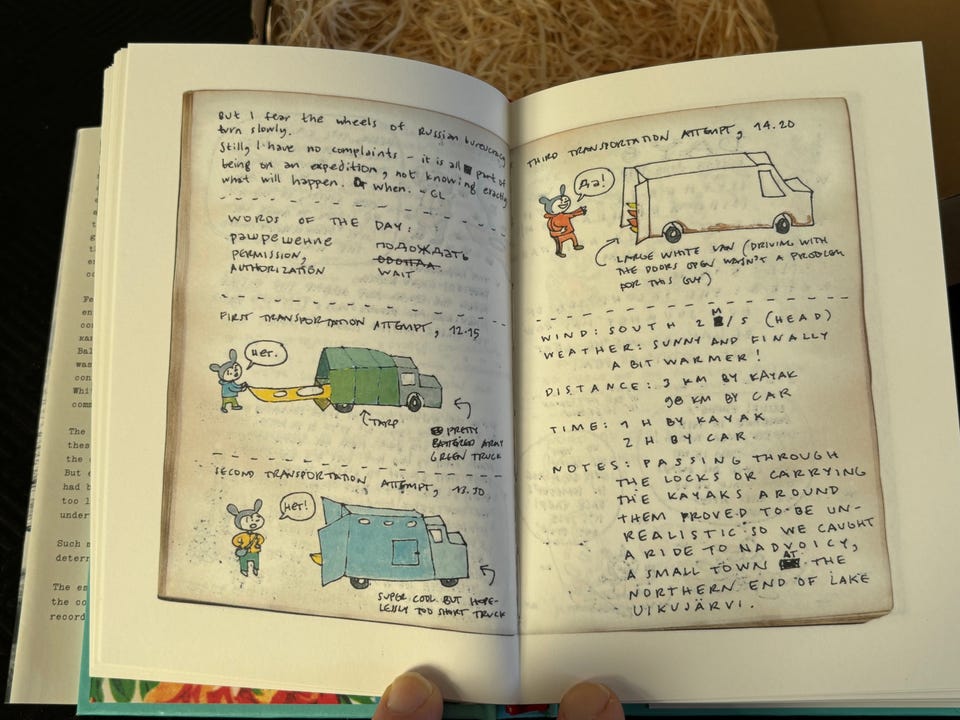 But I fear the wheels of Russian bureucracy
turn slowly.
Still, I have no complaints – it is all part of
being on an expedition, not knowing exactly
what will happen. Or when. – GL
WORDS OF THE DAY:
рашрешение
PERMISSION,
AUTHORIZATION
ПОДОЖДАТЬ
WAIT
FIRST TRANSPORTATION ATTEMPT, 12.15
НЕТ.
TARP
PRETTY
BATTERED ARMY
GREEN TRUCK
SECOND TRANSPORTATION ATTEMPT, 13.30
НЕТ!
SUPER COOL BUT HOPE-
LESSLY TOO SHORT TRUCK
THIRD TRANSPORTATION ATTEMPT, 14.20
ДА!
LARGE WHITE VAN (DRIVING WITH
THE DOORS OPEN WASN'T A PROBLEM
FOR THIS GUY)
WIND: SOUTH 2 M/S (HEAD)
WEATHER: SUNNY AND FINALLY
A BIT WARMER!
DISTANCE: 3 KM BY KAYAK
98 KM BY CAR
TIME: 1 H BY KAYAK
2 H BY CAR.
NOTES: PASSING THROUGH
THE LOCKS OR CARRYING
THE KAYAKS AROUND
THEM PROVED TO BE UN-
REALISTIC SO WE CAUGHT
A RIDE TO NADVOICY,
A SMALL TOWN AT THE
NORTHERN END OF LAKE
UIKUJÄRVI.